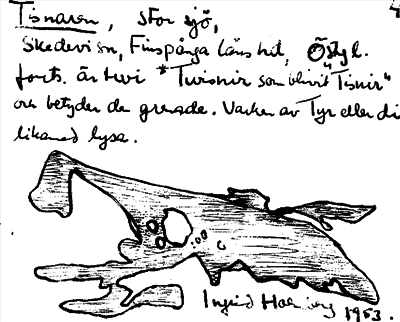 Tisnaren, stor sjö,
Skedevi sn, Finspånga läns hd, Östgl.
forts. är tvi "Tvisnir som blivit "Tisnir"
och betyder de grenade. Varken av Tyr eller di
likamed lysa.
Ingrid 1953.